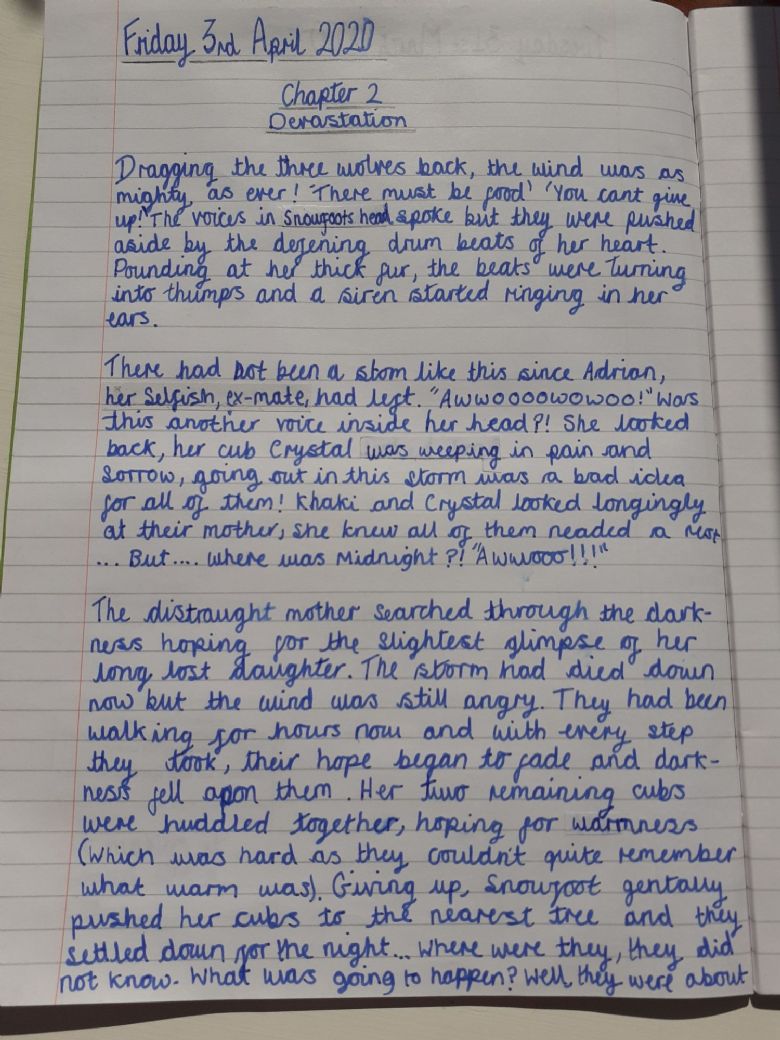 Friday 3rd April 2020
Chapter 2
Devastation
Dragging the three wolves back, the wind was as
mighty as ever! 'There must be food' 'You cant give
up!' The voices in Snowfoots head spoke but they were pushed
aside by the defening drum beats of her heart.
Pounding at her thick fur, the beats were turning
into thumps and a siren started ringing in her
ears.
There had not been a stom like this since Adrian,
her selfish, ex-mate, had left. "Awwoooowowoo!" Was
this another voice inside her head?! She looked
back, her cub Crystal was weeping in pain and
sorrow, going out in this storm was a bad idea
for all of them! Khaki and Crystal looked longingly
at their mother, she knew all of them neaded a rest
... But.... where was Midnight?! "Awwwooo!!!"
The distraught mother searched through the dark-
ness hoping for the slightest glimpse of her
long lost daughter. The storm had died down
now but the wind was still angry. They had been
walking for hours now and with every step
they took, their hope began to fade and dark-
ness fell apon them. Her two remaining cubs
were huddled together, hoping for warmness
(which was hard as they couldn't quite remember
what warm was). Giving up, Snowfoot gentally
pushed her cubs to the nearest tree and they
settled down for the night... Where were they, they did
not know. What was going to happen? Well, they were about